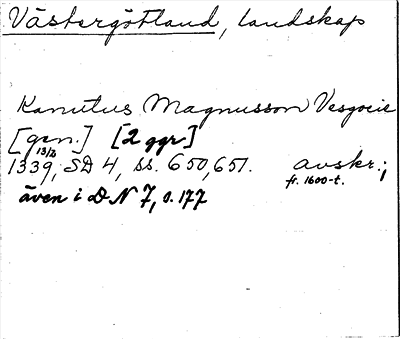 Västergötland, landskap
Kanutus Magnusson Vesgocie
[gen.] [2 ggr]
13/2
1339, SD 4, ss. 650, 651. avskr.;
fr. 1600-t.
även i DN 7, s. 177